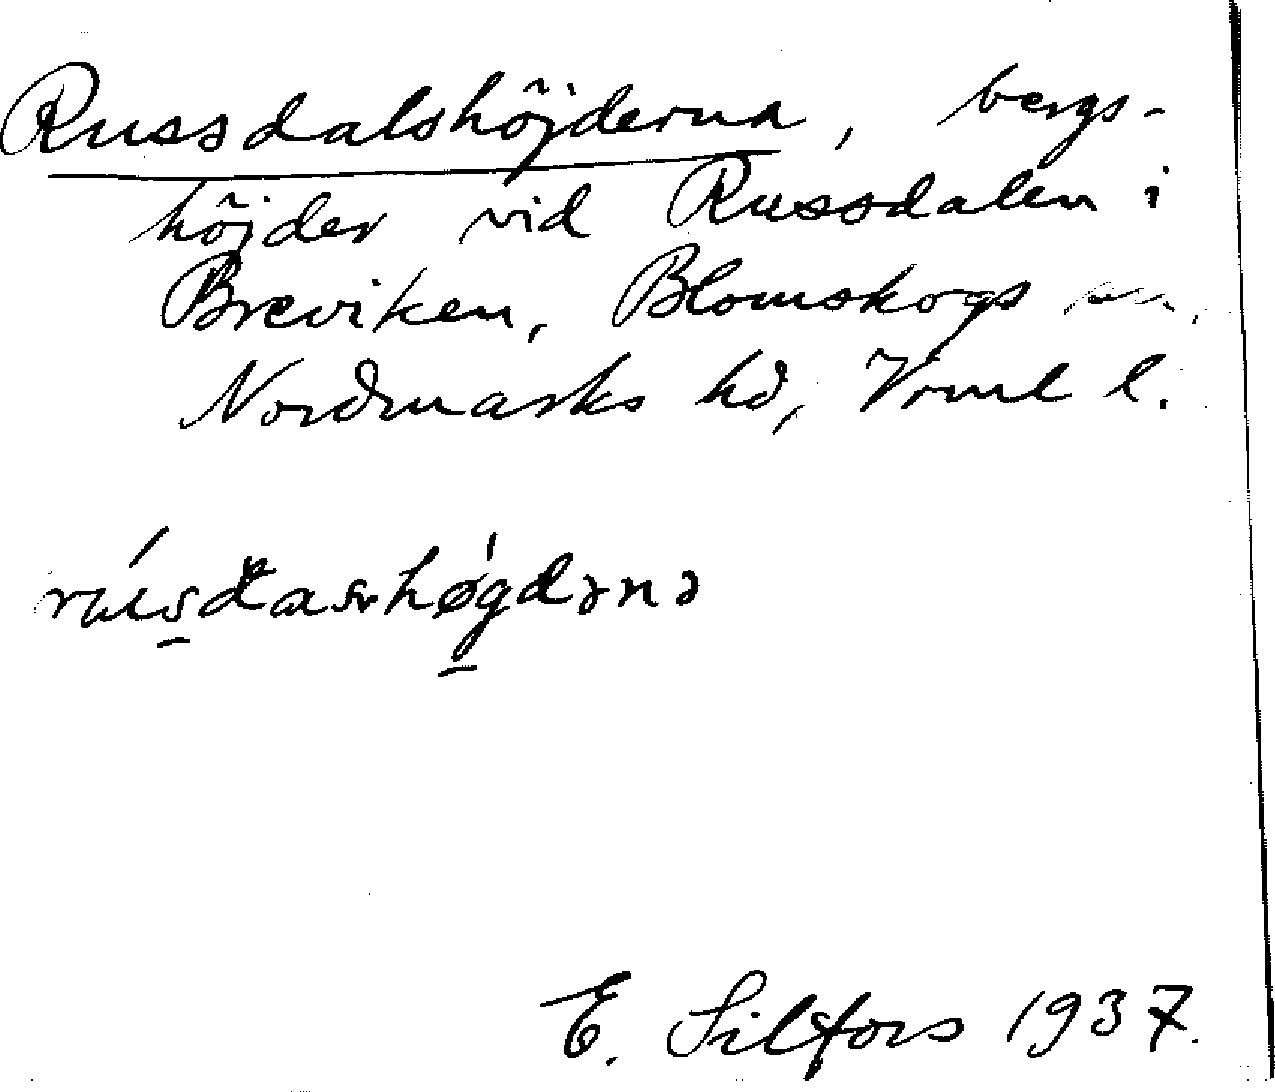 Russdalshöjderna, bergs-
höjder vid Russdalen i
Breviken, Blomskogs sn,
Nordmarks hd, Vrml l.
E. Silfors 1937.